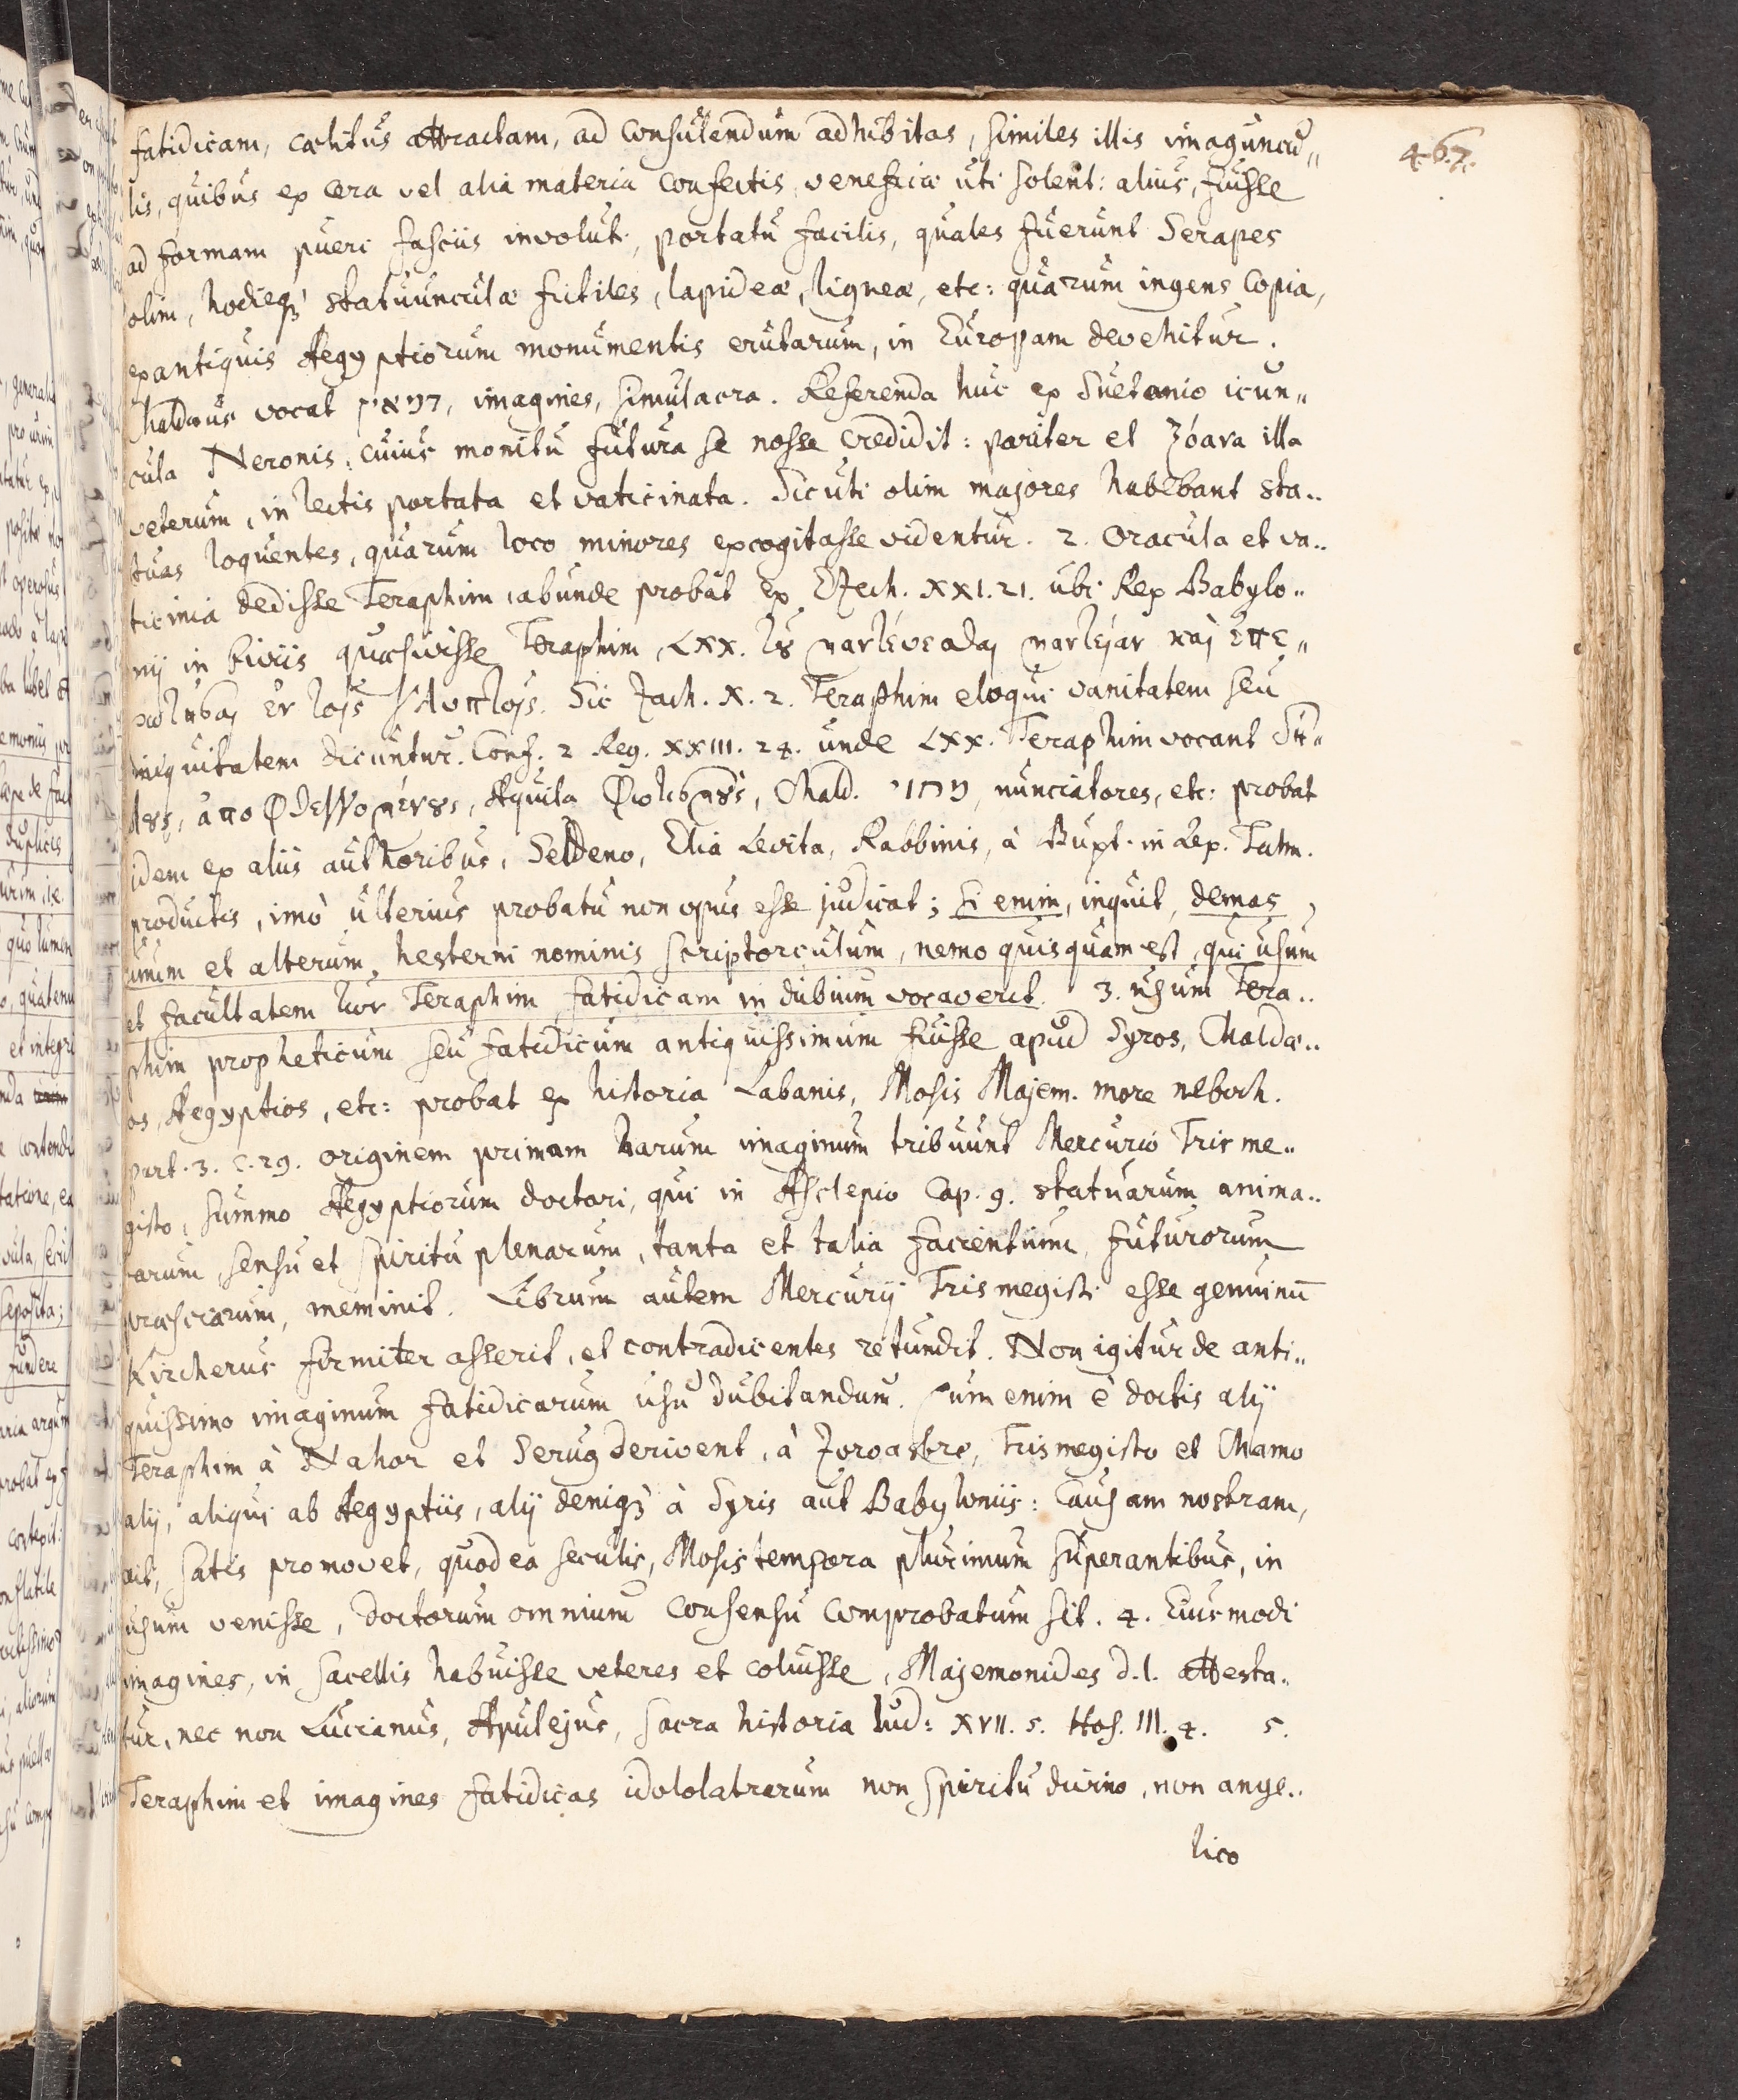 467.
fatidicam, cœlitus attractam, ad consulendum adhibitas, similes illis imaguncu„
lis, quibus ex cera vel alia materia confectis veneficiæ uti solent: alius, fuisse
ad formam pueri fasciis involuti, portatu facilis, quales fuerunt Serapes
olim, hodieq́₃ statuunculæ fictiles, lapideæ, ligneæ, etc: quarum ingens copia,
ex antiquis Aegyptiorum monumentis erutarum, in Europam devehitur.
Chaldæus vocat imagines, simulacra. Referenda huc ex Suetonio icun„
cula Neronis, cuius monitu futura se nosse credidit: pariter et ζόανα illa
veterum, in lectis portata et vaticinata. Sicuti olim majores habebant sta..
tuas loquentes, quarum loco minores excogitasse videntur. 2. Oracula et va..
ticinia dedisse Teraphim, abunde probat ex Ezech. XXI. 21. ubi Rex Babylo..
nij in biviis quæsivisse Teraphim, LXX. τȣ μαντέυεσθαι μαντείαν καὶ ἐπε„
ρωτῆσαι ἐν τοῖς γλυπτοῖς. Sic Zach. X. 2. Teraphim eloqui vanitatem seu
iniquitatem dicuntur. Conf. 2 Reg. XXIII. 24. unde LXX. Teraphim vocant δή„
λȣς, ἀποφθεγγομένȣς, Aquila φωτισμȣς, Chald. nunciatores, etc: probat
idem ex aliis authoribus, Seldeno, Elia Levita, Rabbinis, à Buxt. in Lex. Talm.
productis, imò ulterius probatu non opus esse judicat; si enim, inquit, demas,
unum et alterum, hesterni nominis scriptorculum, nemo quisquam est, qui usum
et facultatem τῶν Teraphim fatidicam in dubium vocaverit. 3. usum Tera..
phim propheticum seu fatidicum antiquissimum fuisse apud Syros, Chaldæ..
os, Aegyptios, etc: probat ex historia Labanis, Mosis Majem. more neboch.
part. 3. c. 29. originem primam harum imaginum tribuunt Mercurio Trisme..
gisto, summo Aegyptiorum doctori, qui in Asclepio Cap. 9. statuarum anima..
tarum, sensu et spiritu plenarum, tanta et talia facientium, futurorum
præsciarum, meminit. Librum autem Mercurij Trismegisti esse genuinū
Kircherus firmiter asserit, et contradicentes retundit. Non igitur de anti„
quissimo imaginum fatidicarum usu dubitandum. Cum enim è doctis alij
Teraphim à Nahor et Serug derivent, à Zoroastre, Trismegisto et Chamo
alij, aliqui ab Aegyptiis, alij deniq́₃ à Syris aut Babyloniis: Causam nostram,
ait, satis promovet, quod ea seculis, Mosis tempora plurimum superantibus, in
usum venisse, doctorum omnium consensu comprobatum sit. 4. Eiusmodi
imagines, in sacellis habuisse veteres et coluisse, Majemonides d.l. attesta..
tur, nec non Lucianus, Apulejus, sacra historia Jud: XVII. 5. Hos. III. 4. 5.
Teraphim et imagines fatidicas idololatrarum non spiritu divino, non ange..
lico